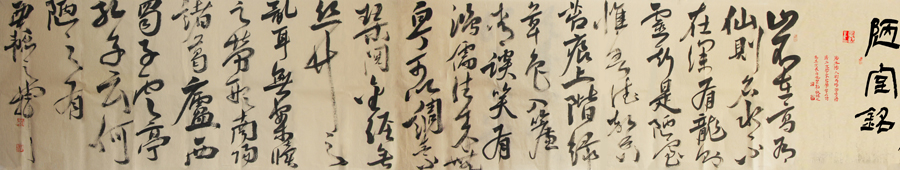 陋室銘
山不在高有
仙則名水不
在深有龍則
靈斯是陋室
惟吾德馨
苔痕上階綠
草色入簾
青談笑有
鴻儒往來無
白丁可以調素
琴閱金經無
絲竹之
亂耳無案牘
之勞形南陽
諸葛廬西
蜀子雲亭
孔子云何
陋之有